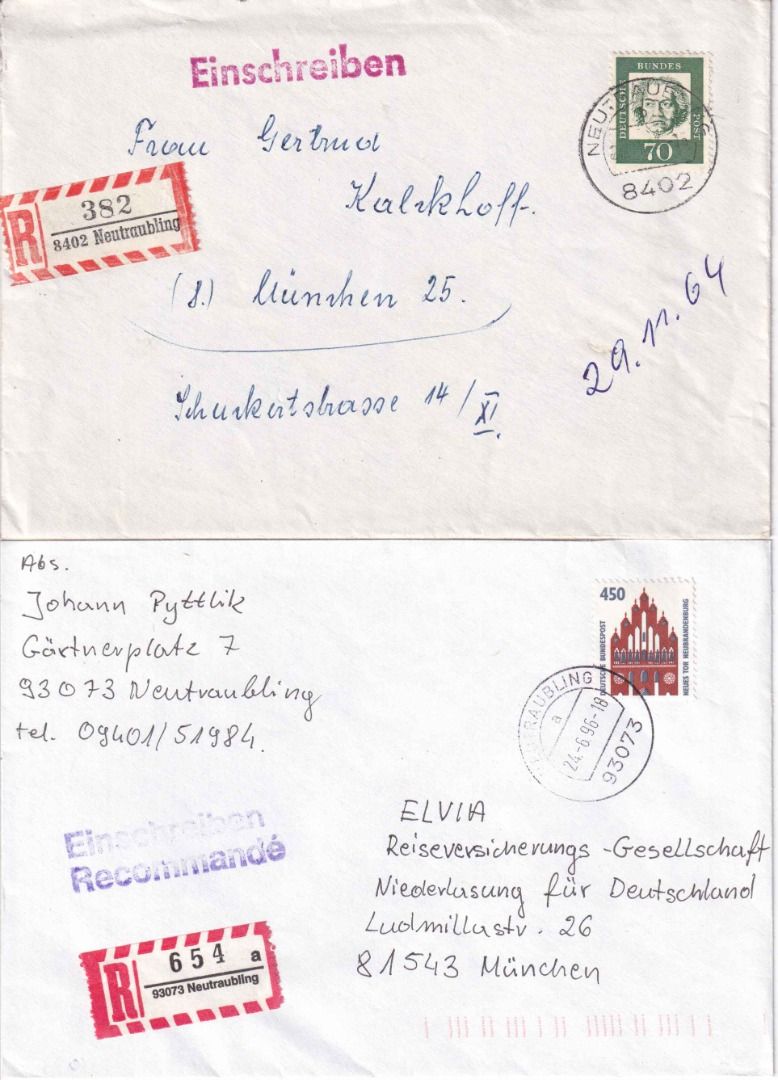 Einschreiben
DEUTSCHE
BUNDES
POST
70
8402
Frau Gertrud
Kalckhoff.
R
382
8402 Neutraubling
(8.) München 25.
29.11.64
Schuckertstrasse 14/XI.
Abs.
Johann Pyttlik
Gärtnerplatz 7
93073 Neutraubling
tel. 09401/51984.
450
DEUTSCHE BUNDESPOST
NEUES TOR NEUBRANDENBURG
NEUTRAUBLING
a
24.-6.96-18
93073
Einschreiben
Recommandé
ELVIA
Reiseversicherungs-Gesellschaft
Niederlasung für Deutschland
Ludmillastr. 26
81543 München
R
654 a
93073 Neutraubling